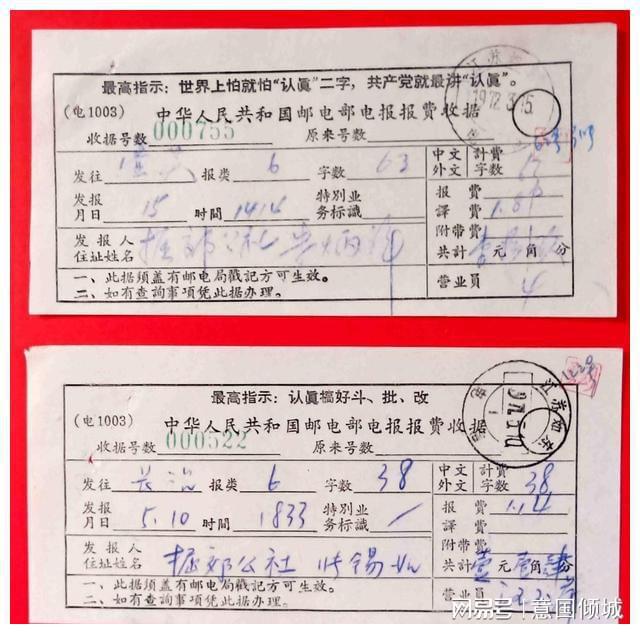 最高指示：世界上怕就怕“认真”二字，共产党就最讲“认真”。
(电1003) 中华人民共和国邮电部电报报费收据
江苏
1972.3.15
收据号数 000755 原来号数
发往 报类 6 字数 63 中文外文 計費字数
发报月日 15 時間 1414 特别业务标識 报費 譯費
发报人住址姓名 掘郊公社 附带費 共計 元 角 分
一、此据須盖有邮电局戳記方可生效。
二、如有查詢事項凭此据办理。
营业员 4
最高指示：认真搞好斗、批、改
(电1003) 中华人民共和国邮电部电报报费收据
江苏如东
收据号数 000522 原来号数
发往 长治 报类 6 字数 38 中文外文 計費字数 38
发报月日 5.10 時間 1833 特别业务标識 / 报費 1.14 譯費
发报人住址姓名 掘郊公社 附带費 共計 壹元壹角肆分
一、此据須盖有邮电局戳記方可生效。
二、如有查詢事項凭此据办理。
营业员
搜狐号@意国倾城